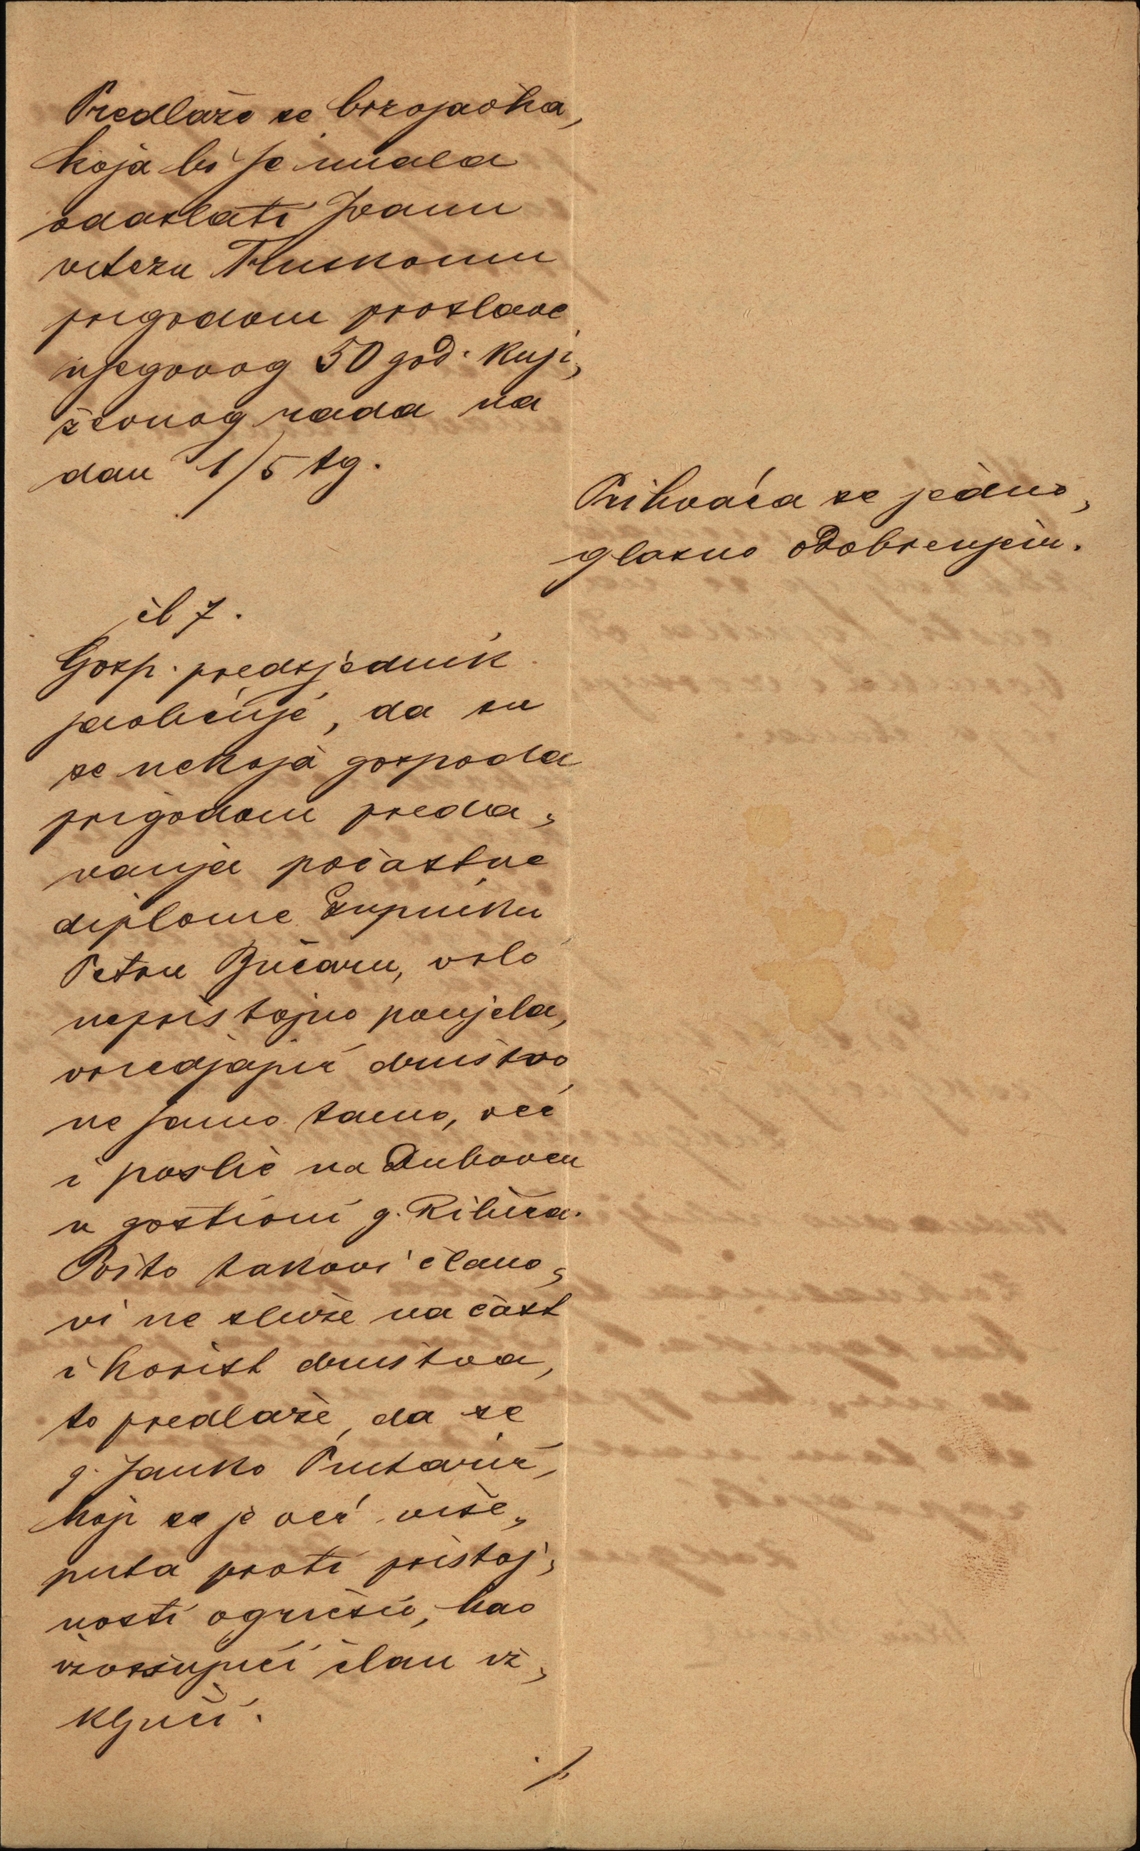 Predlaže se brzojavka,
koja bi se imala
odaslati Ivanu
vitezu Trnskomu
prigodom proslave
njegovog 50 god. knji„
ževnog rada na
dan 1/5 tg.
Prihvaća se jedno„
glasno odobrenjem.
čl 7.
Gosp. predsjednik
priobćuje, da su
se nekoja gospoda
prigodom preda„
vanja počastne
diplome župniku
Petru Bučaru, vrlo
nepristojno ponjela,
vriedjajuć družtvo
ne samo tamo, već
i poslie na Dubovcu
u gostioni g. Ribića.
Pošto takovi člano„
vi ne služe na čast
i korist družtva,
to predlaže, da se
g. Janko
koji se je već više„
puta proti pristoj„
nosti ogriešio, kao
izvršujući član iz„
ključi.
./.